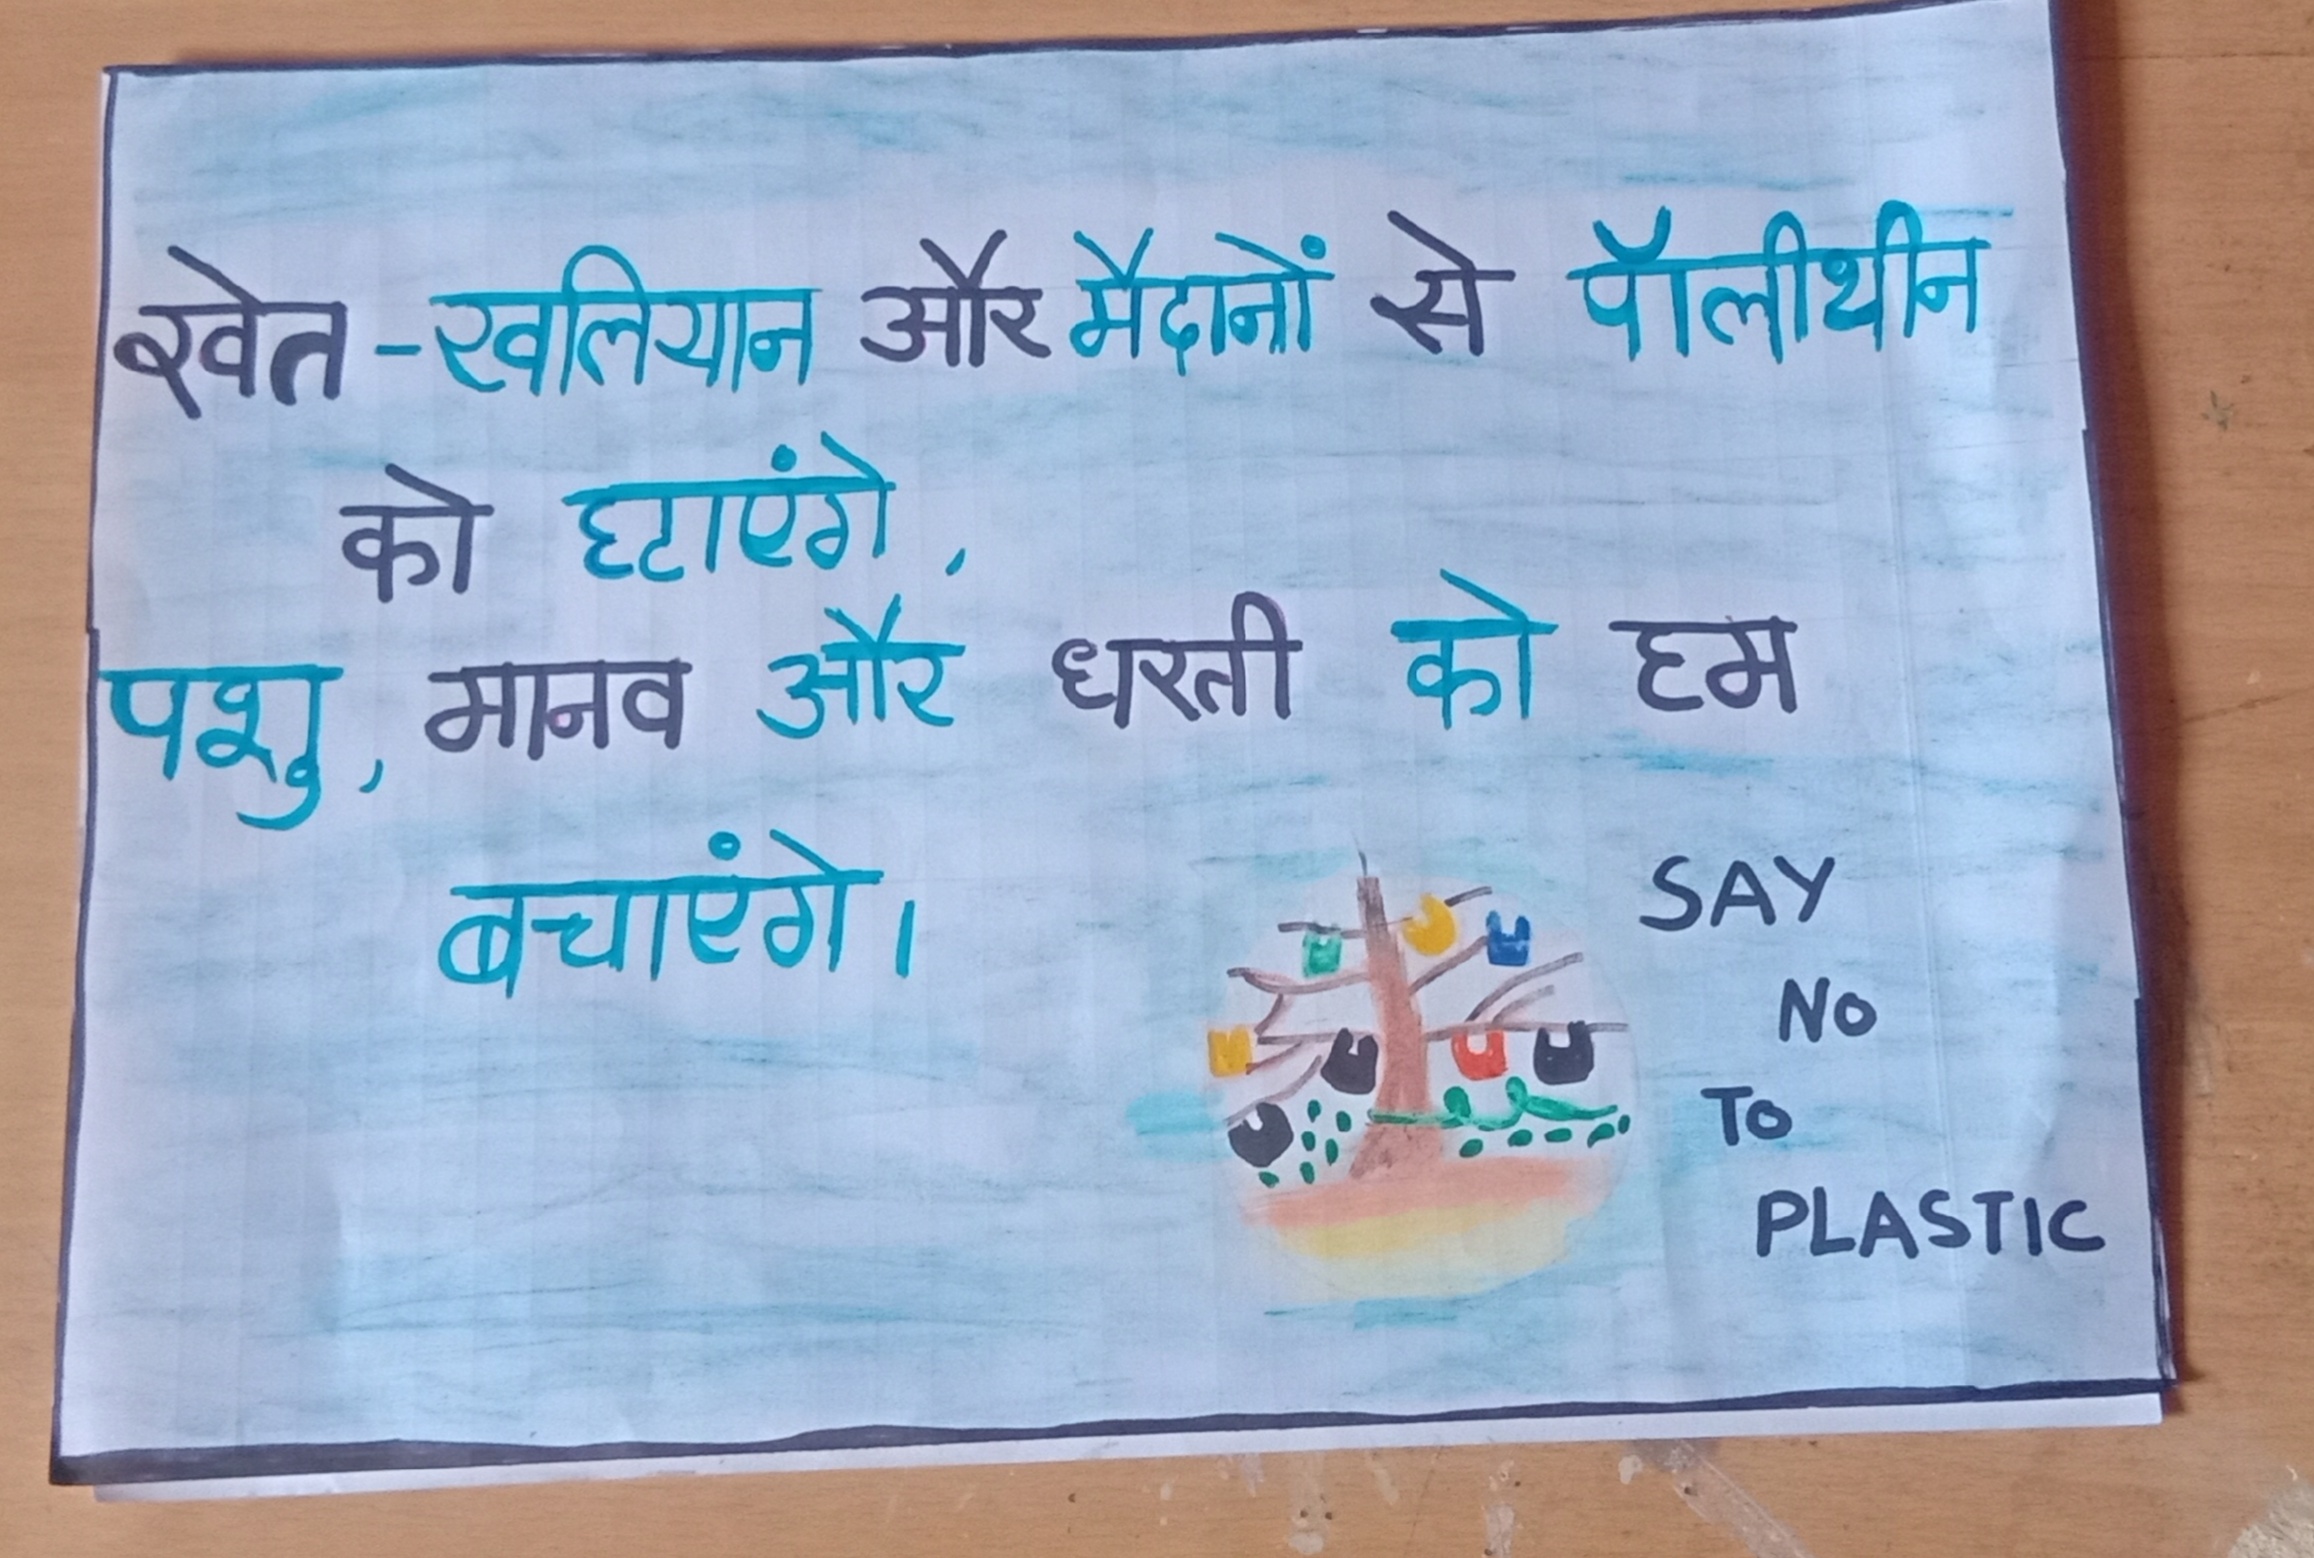 खेत -खलियान और मैदानों से पॉलीथीन
को हटाएंगे,
पशु, मानव और धरती को हम
बचाएंगे।
SAY
NO
TO
PLASTIC